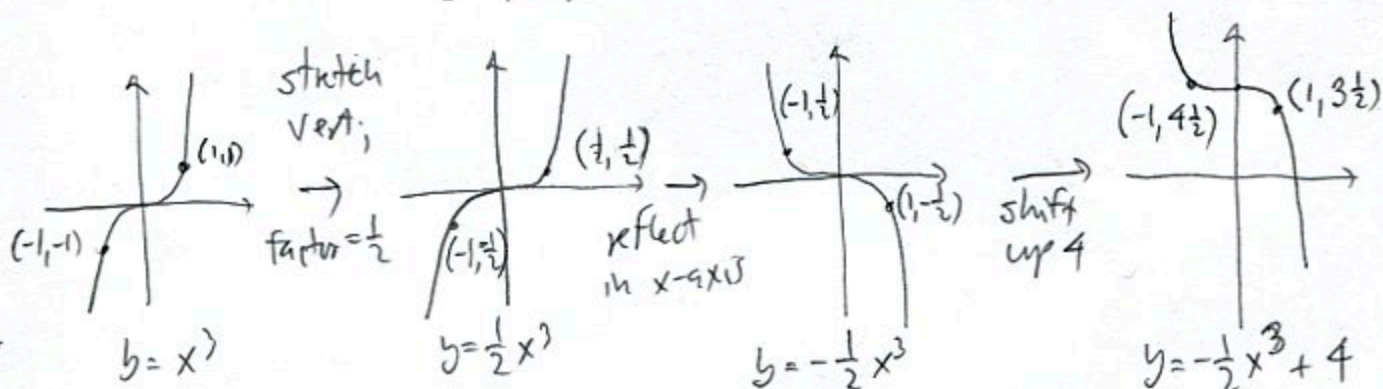 (1,1)
(-1,-1)
y = x³
stretch
vert;
→
factor = ½
(½, ½)
(-1, -½)
y = ½ x³
→
reflect
in x-axis
(-1, ½)
(1, -½)
y = -½ x³
→
shift
up 4
(-1, 4½)
(1, 3½)
y = -½ x³ + 4